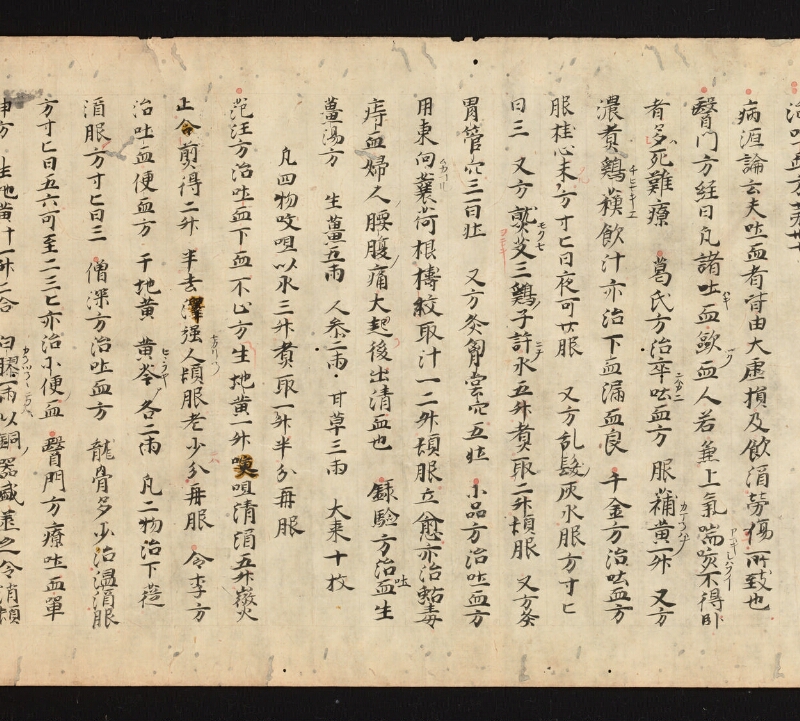 治吐血方第卅
病源論云夫吐血者皆由大虚損及飲酒勞傷所致也
醫門方経曰凡諸吐血歐血人若兼上氣喘咳不得卧
者多死難療 葛氏方治卒吐血方 服蒲黄一升 又方
濃煮鷄蘇飲汁亦治下血漏血良 千金方治吐血方
服桂心末方寸匕日夜可廿服 又方乱髮灰水服方寸匕
日三 又方熟艾三鷄子許水五升煮取二升頓服 又方灸
胃管穴三百壮 又方灸胷堂穴五壮 小品方治吐血方
用東向蘘荷根擣絞取汁一二升頓服立愈亦治蛄毒
痔血婦人腰腹痛大起後出清血也 録驗方治吐血生
薑湯方 生薑五兩 人参二兩 甘草三兩 大枣十枚
凡四物㕮咀以水三升煮取一升半分再服
范汪方治吐血下血不止方生地黄一升㕮咀清酒五升微火
上合煎得二升半去滓强人頓服老少分再服 令李方
治吐血便血方 干地黄 黄芩各二兩 凡二物治下簁
酒服方寸匕日三 僧深方治吐血方 龍骨多少治温酒服
方寸匕日五六可至二三匕亦治小便血 醫門方療吐血單
方 生地黄汁一升二合 白膠一兩以銅器盛蒸之令消頓